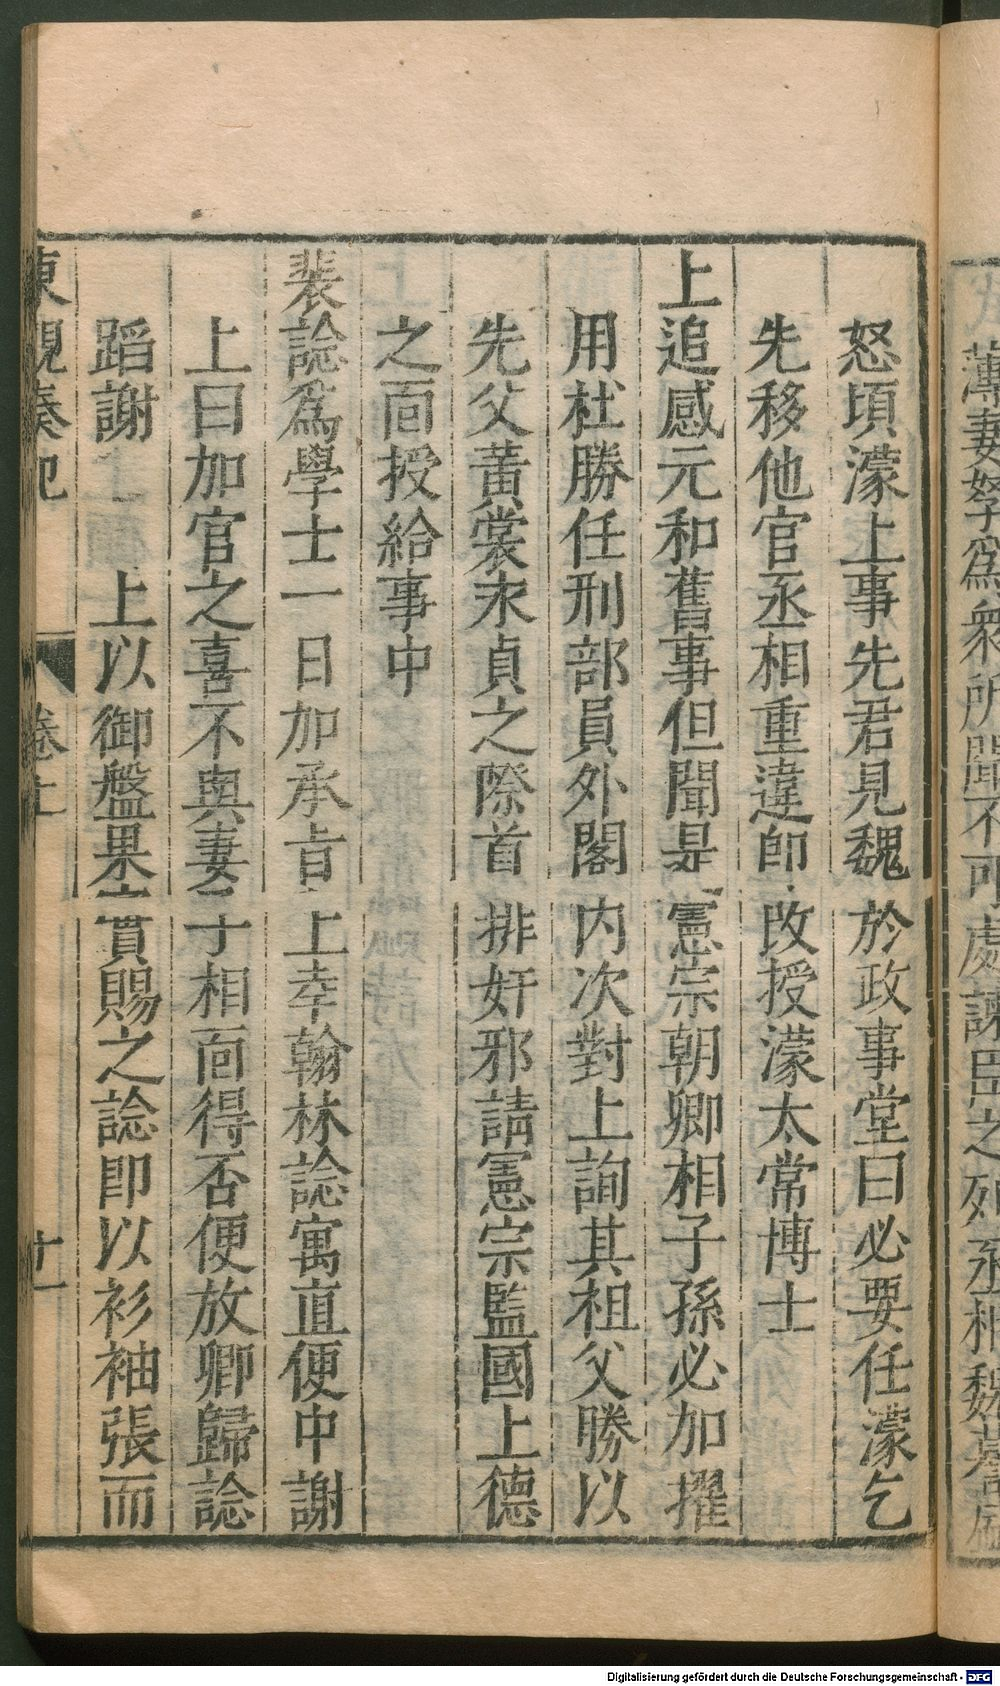 薄妻孥爲衆所聞不可處諫臣之列丞相魏
怒頃濛上事先君見魏於政事堂曰必要任濛乞
先移他官丞相重違即改授濛太常博士
上追感元和舊事但聞是憲宗朝卿相子孫必加擢
用杜勝任刑部員外閣内次對上詢其祖父勝以
先父黃裳永貞之際首排奸邪請憲宗監國上德
之面授給事中
裴諗爲學士一日加承旨上幸翰林諗寓直便中謝
上曰加官之喜不與妻子相面得否便放卿歸諗
蹈謝 上以御盤果實賜之諗即以衫袖張而
東觀奏記 卷上 十一
Digitalisierung gefördert durch die Deutsche Forschungsgemeinschaft - DFG